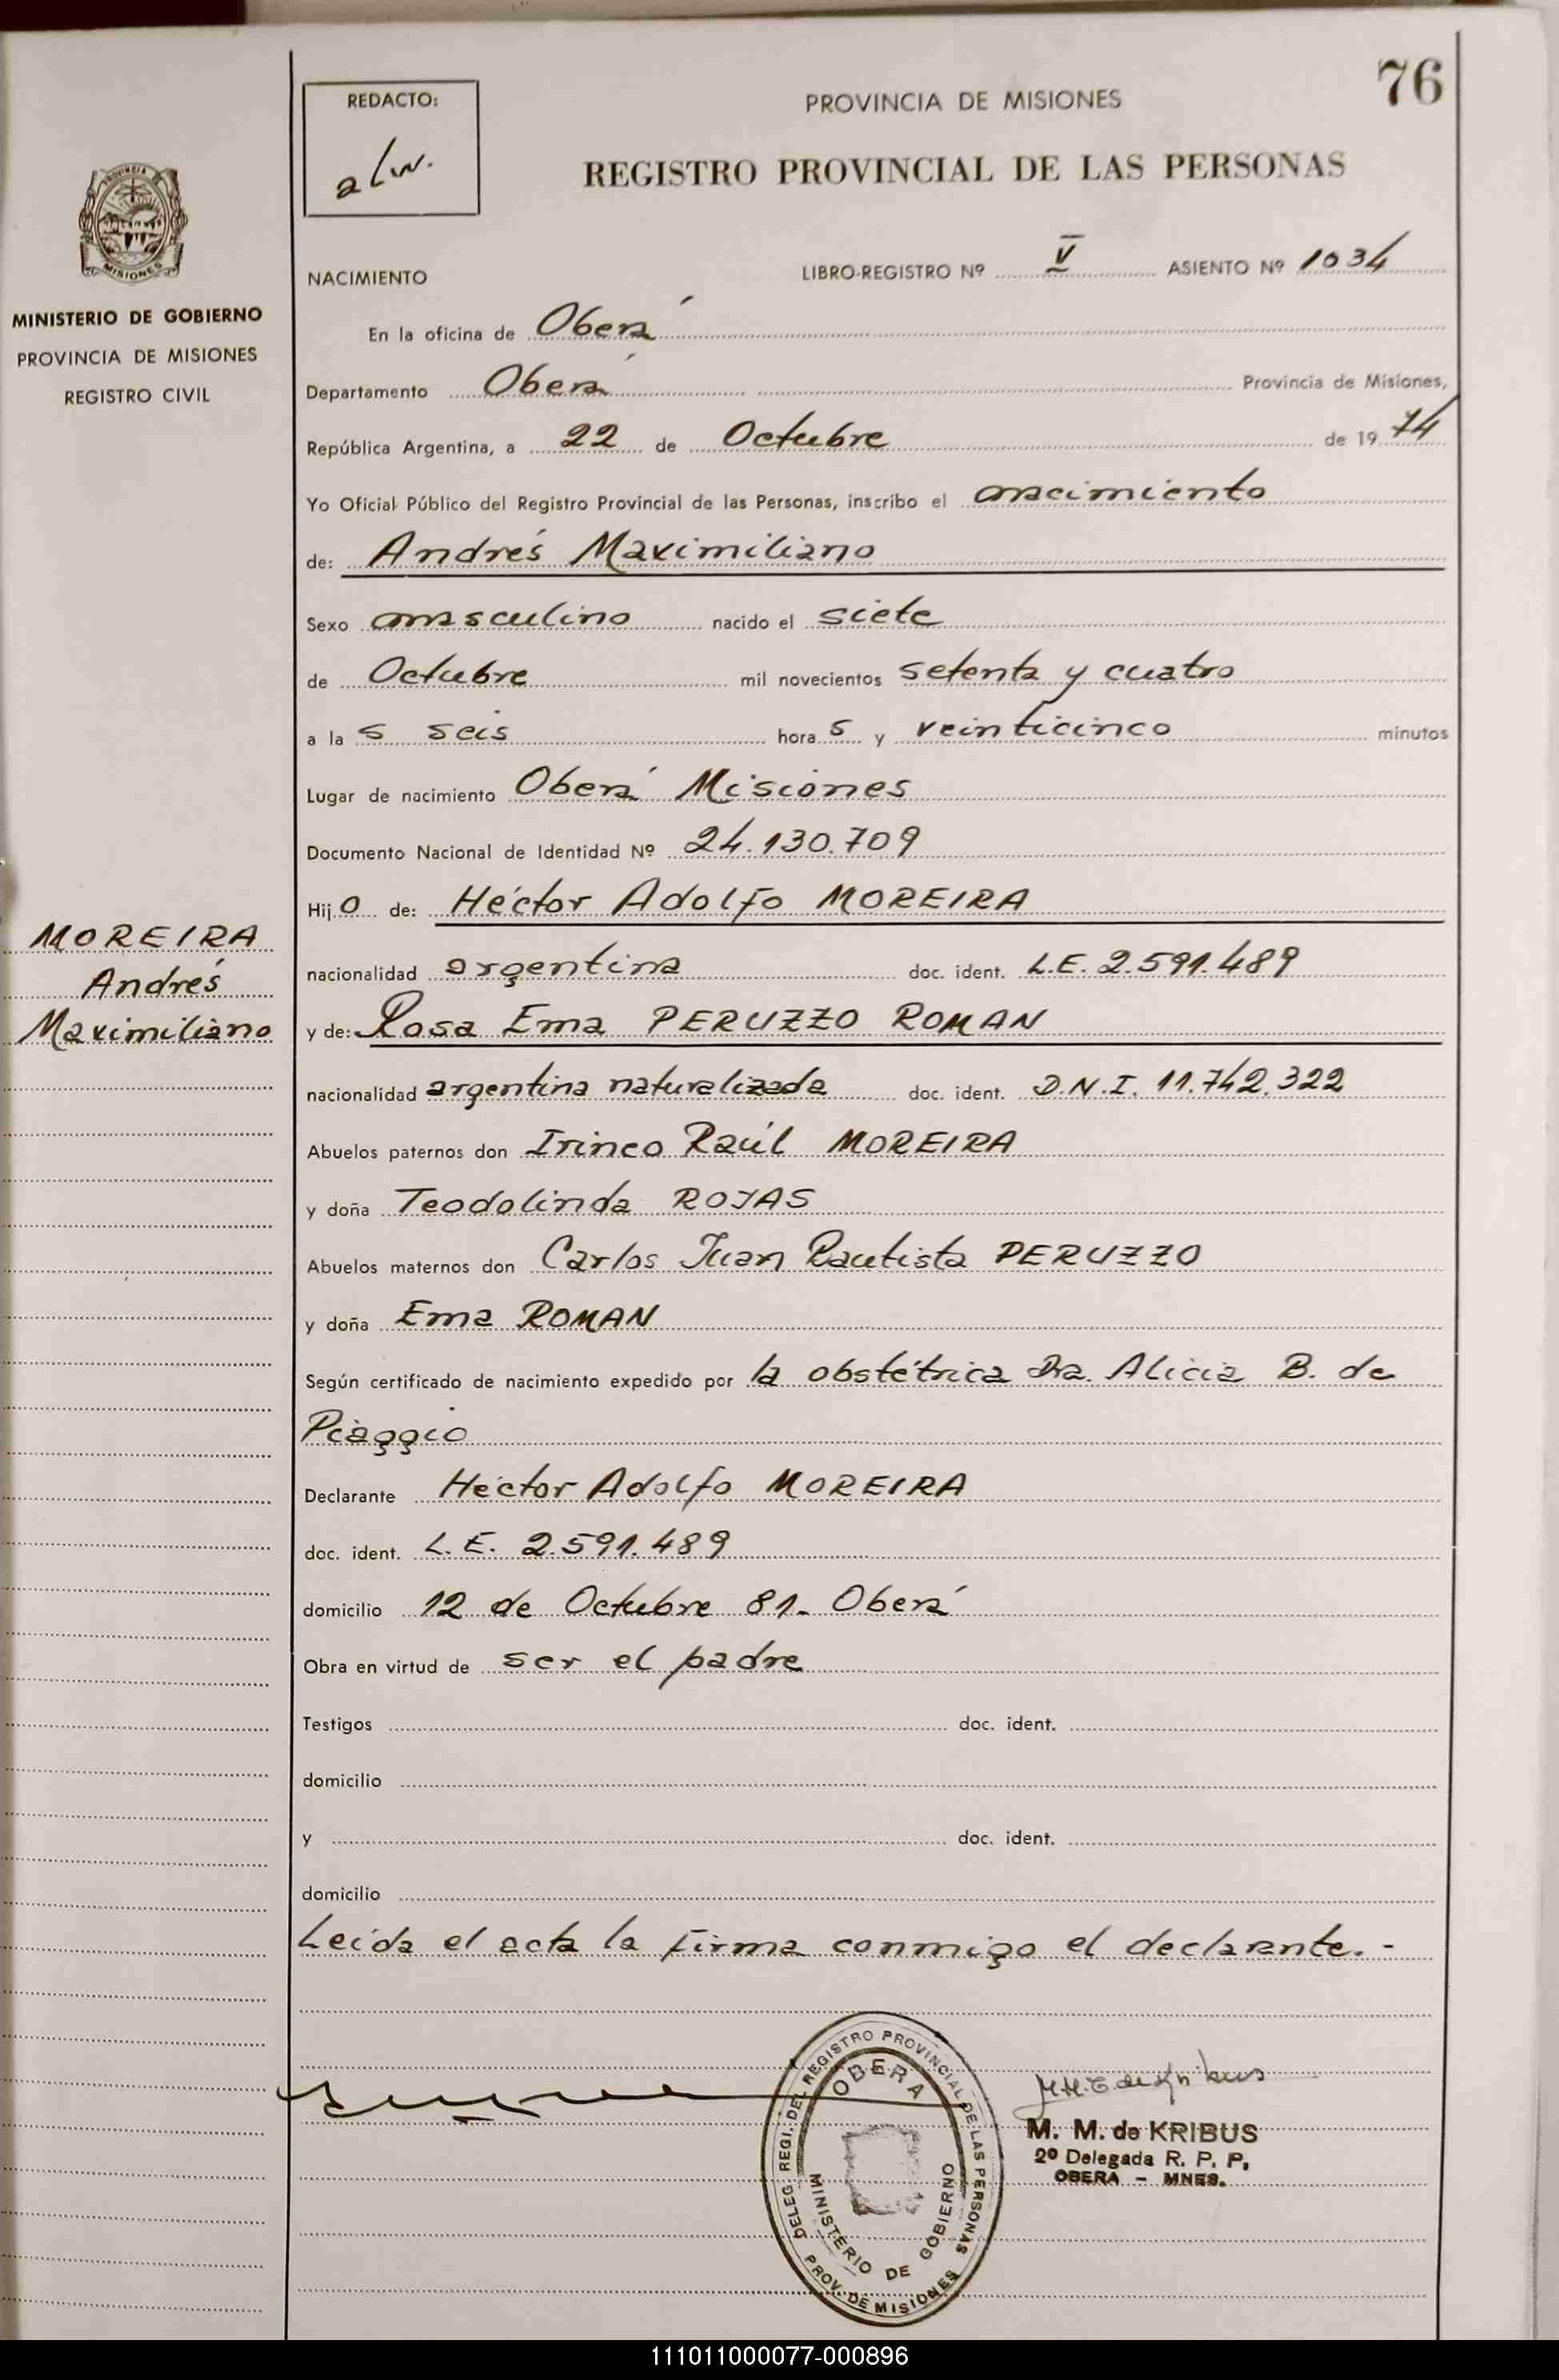 76
REDACTO:
PROVINCIA DE MISIONES
REGISTRO PROVINCIAL DE LAS PERSONAS
PROVINCIA DE
MISIONES
MINISTERIO DE GOBIERNO
PROVINCIA DE MISIONES
REGISTRO CIVIL
NACIMIENTO
LIBRO-REGISTRO Nº V ASIENTO Nº 1034
En la oficina de Oberá
Departamento Oberá Provincia de Misiones,
República Argentina, a 22 de Octubre de 1974
Yo Oficial Público del Registro Provincial de las Personas, inscribo el nacimiento
de: Andrés Maximiliano
Sexo masculino nacido el siete
de Octubre mil novecientos setenta y cuatro
a la s seis hora s y veinticinco minutos
Lugar de nacimiento Oberá Misiones
Documento Nacional de Identidad Nº 24.130.709
Hij o de: Héctor Adolfo MOREIRA
MOREIRA
Andrés
Maximiliano
nacionalidad argentina doc. ident. L.E. 2.591.489
y de: Rosa Ema PERUZZO ROMAN
nacionalidad argentina naturalizada doc. ident. D.N.I. 11.742.322
Abuelos paternos don Irineo Raúl MOREIRA
y doña Teodolinda ROJAS
Abuelos maternos don Carlos Juan Bautista PERUZZO
y doña Ema ROMAN
Según certificado de nacimiento expedido por la obstétrica Dra. Alicia B. de
Piaggio
Declarante Héctor Adolfo MOREIRA
doc. ident. L.E. 2.591.489
domicilio 12 de Octubre 81- Oberá
Obra en virtud de ser el padre
Testigos doc. ident.
domicilio
y doc. ident.
domicilio
Leída el acta la firma conmigo el declarante.-
DELEG. REGI. DEL REGISTRO PROVINCIAL DE LAS PERSONAS
OBERA
MINISTERIO DE GOBIERNO
PROV. DE MISIONES
M. M. de KRIBUS
2º Delegada R. P. P.
OBERA - MNES.
111011000077-000896